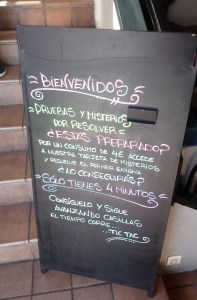 BIENVENIDOS
PRUEBAS Y MISTERIOS
POR RESOLVER
¿ESTÁS PREPARADO?
POR UN CONSUMO DE 4€ ACCEDE
A NUESTRA TARJETA DE MISTERIOS
Y RESUELVE EL PRIMER ENIGMA
¿LO CONSEGUIRÁS?
SÓLO TIENES 4 MINUTOS
CONSÍGUELO Y SIGUE
AVANZANDO CASILLAS
EL TIEMPO CORRE....
...TIC TAC